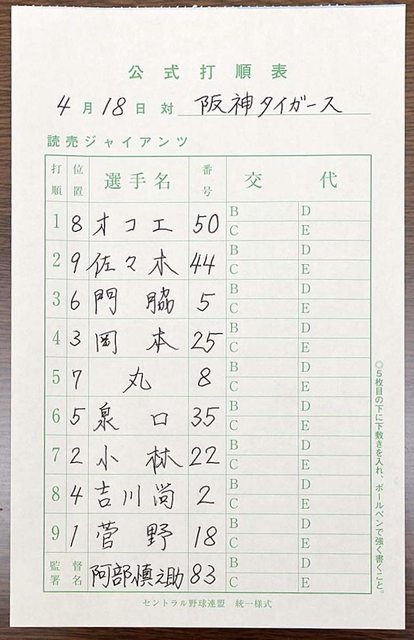 公式打順表
4月18日 対 阪神タイガース
読売ジャイアンツ
打順 位置 選手名 番号 交代
1 8 オコエ 50 B D C E
2 9 佐々木 44 B D C E
3 6 門脇 5 B D C E
4 3 岡本 25 B D C E
5 7 丸 8 B D C E
6 5 泉口 35 B D C E
7 2 小林 22 B D C E
8 4 吉川尚 2 B D C E
9 1 菅野 18 B D C E
監督署名 阿部慎之助 83
セントラル野球連盟 統一様式
◎5枚目の下に下敷きを入れ、ボールペンで強く書くこと。